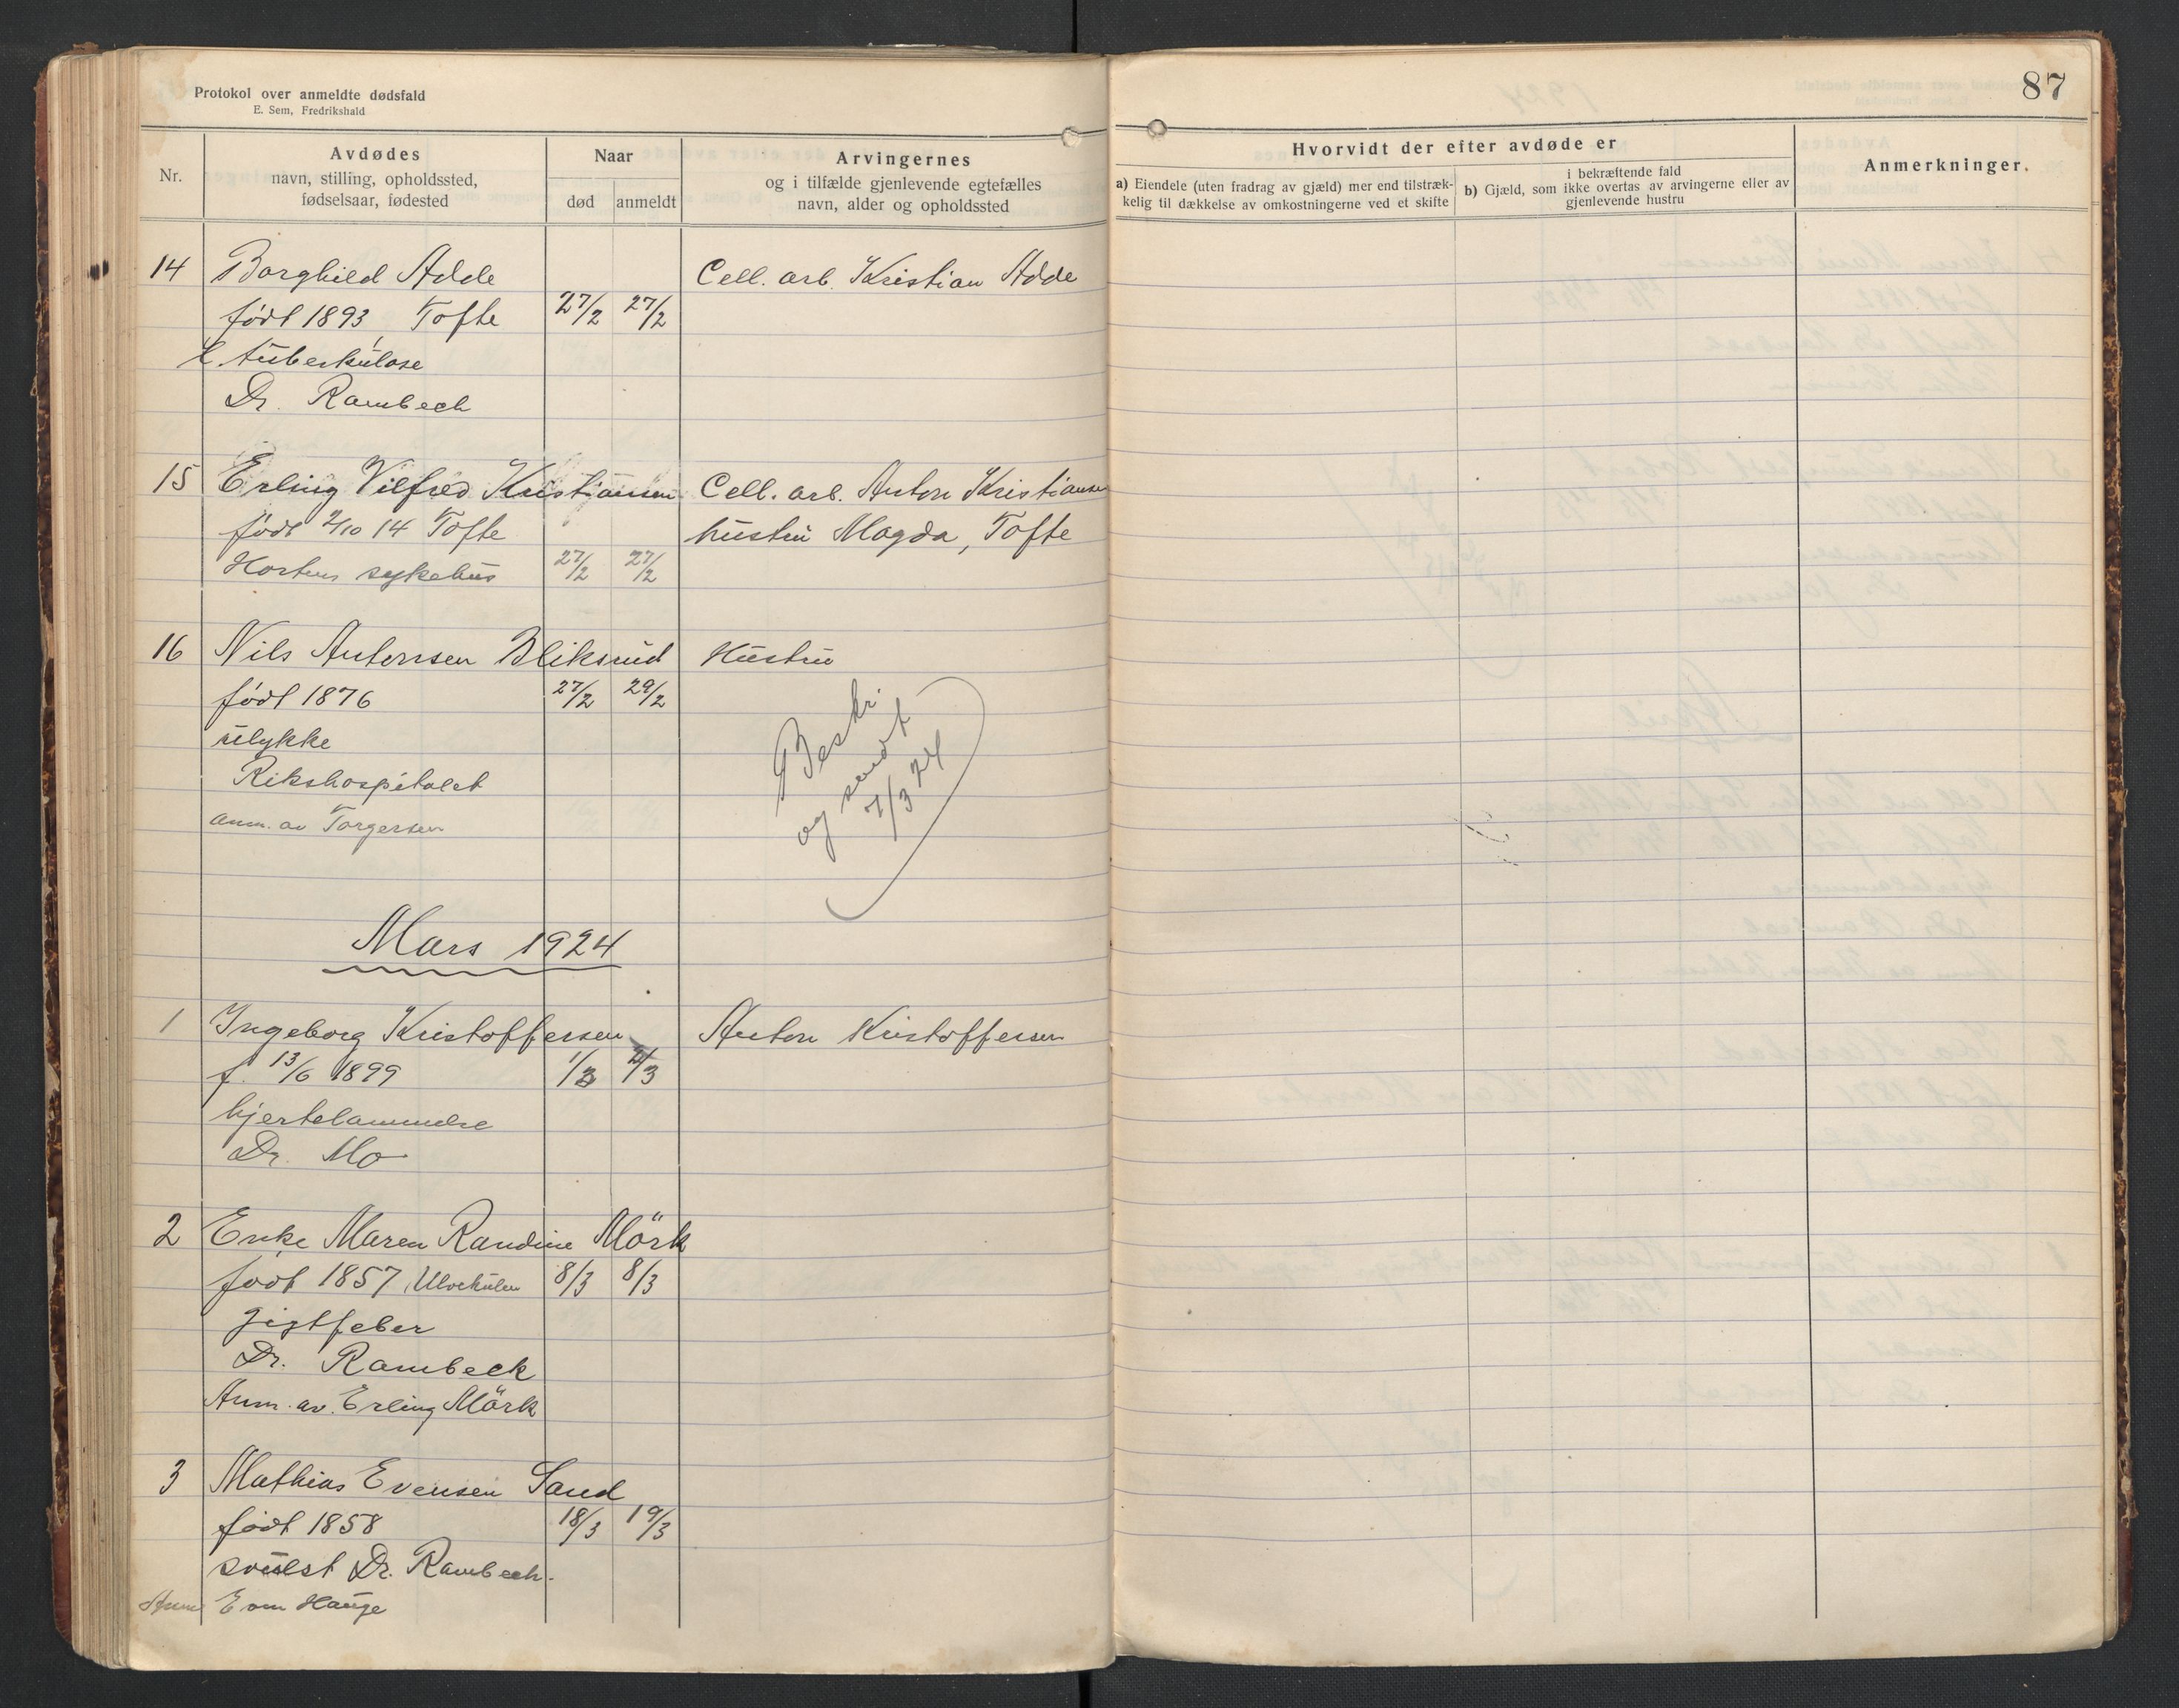 Protokol over anmeldte dødsfald
E. Sem, Fredrikshald
87
Nr.
Avdødes
navn, stilling, opholdssted,
fødselsaar, fødested
Naar
død
anmeldt
Arvingernes
og i tilfælde gjenlevende egtefælles
navn, alder og opholdssted
Hvorvidt der efter avdøde er
a) Eiendele (uten fradrag av gjæld) mer end tilstræk-
kelig til dækkelse av omkostningerne ved et skifte
i bekræftende fald
b) Gjæld, som ikke overtas av arvingerne eller av
gjenlevende hustru
Anmerkninger.
14 Borghild Adde Cell. arb. Kristian Adde
født 1893, Tofte 27/2 27/2
tuberkulose
Dr. Rambech
15 Erling Vilfred Kristiansen Cell. arb. Anton Kristiansen
født 2/10 14 Tofte hustru Magda, Tofte
Hortens sykehus 27/2 27/2
16 Nils Antonsen Bliksrud Hustru
født 1876 27/2 29/2
ulykke
Rikshospitalet
anm. av Torgersen
Beskr.
og sendt
7/3 24
Mars 1924
1 Ingeborg Kristoffersen Anton Kristoffersen
f. 13/6 1899 1/3 4/3
hjertelammelse
Dr. Mo
2 Enke Maren Randine Mörk
født 1857, Ulvekulen 8/3 8/3
gigtfeber
Dr. Rambeck
Anm. av. Erling Mörk
3 Mathias Evensen Sand
født 1858 18/3 19/3
svulst Dr. Rambech.
Anm Even Hauge